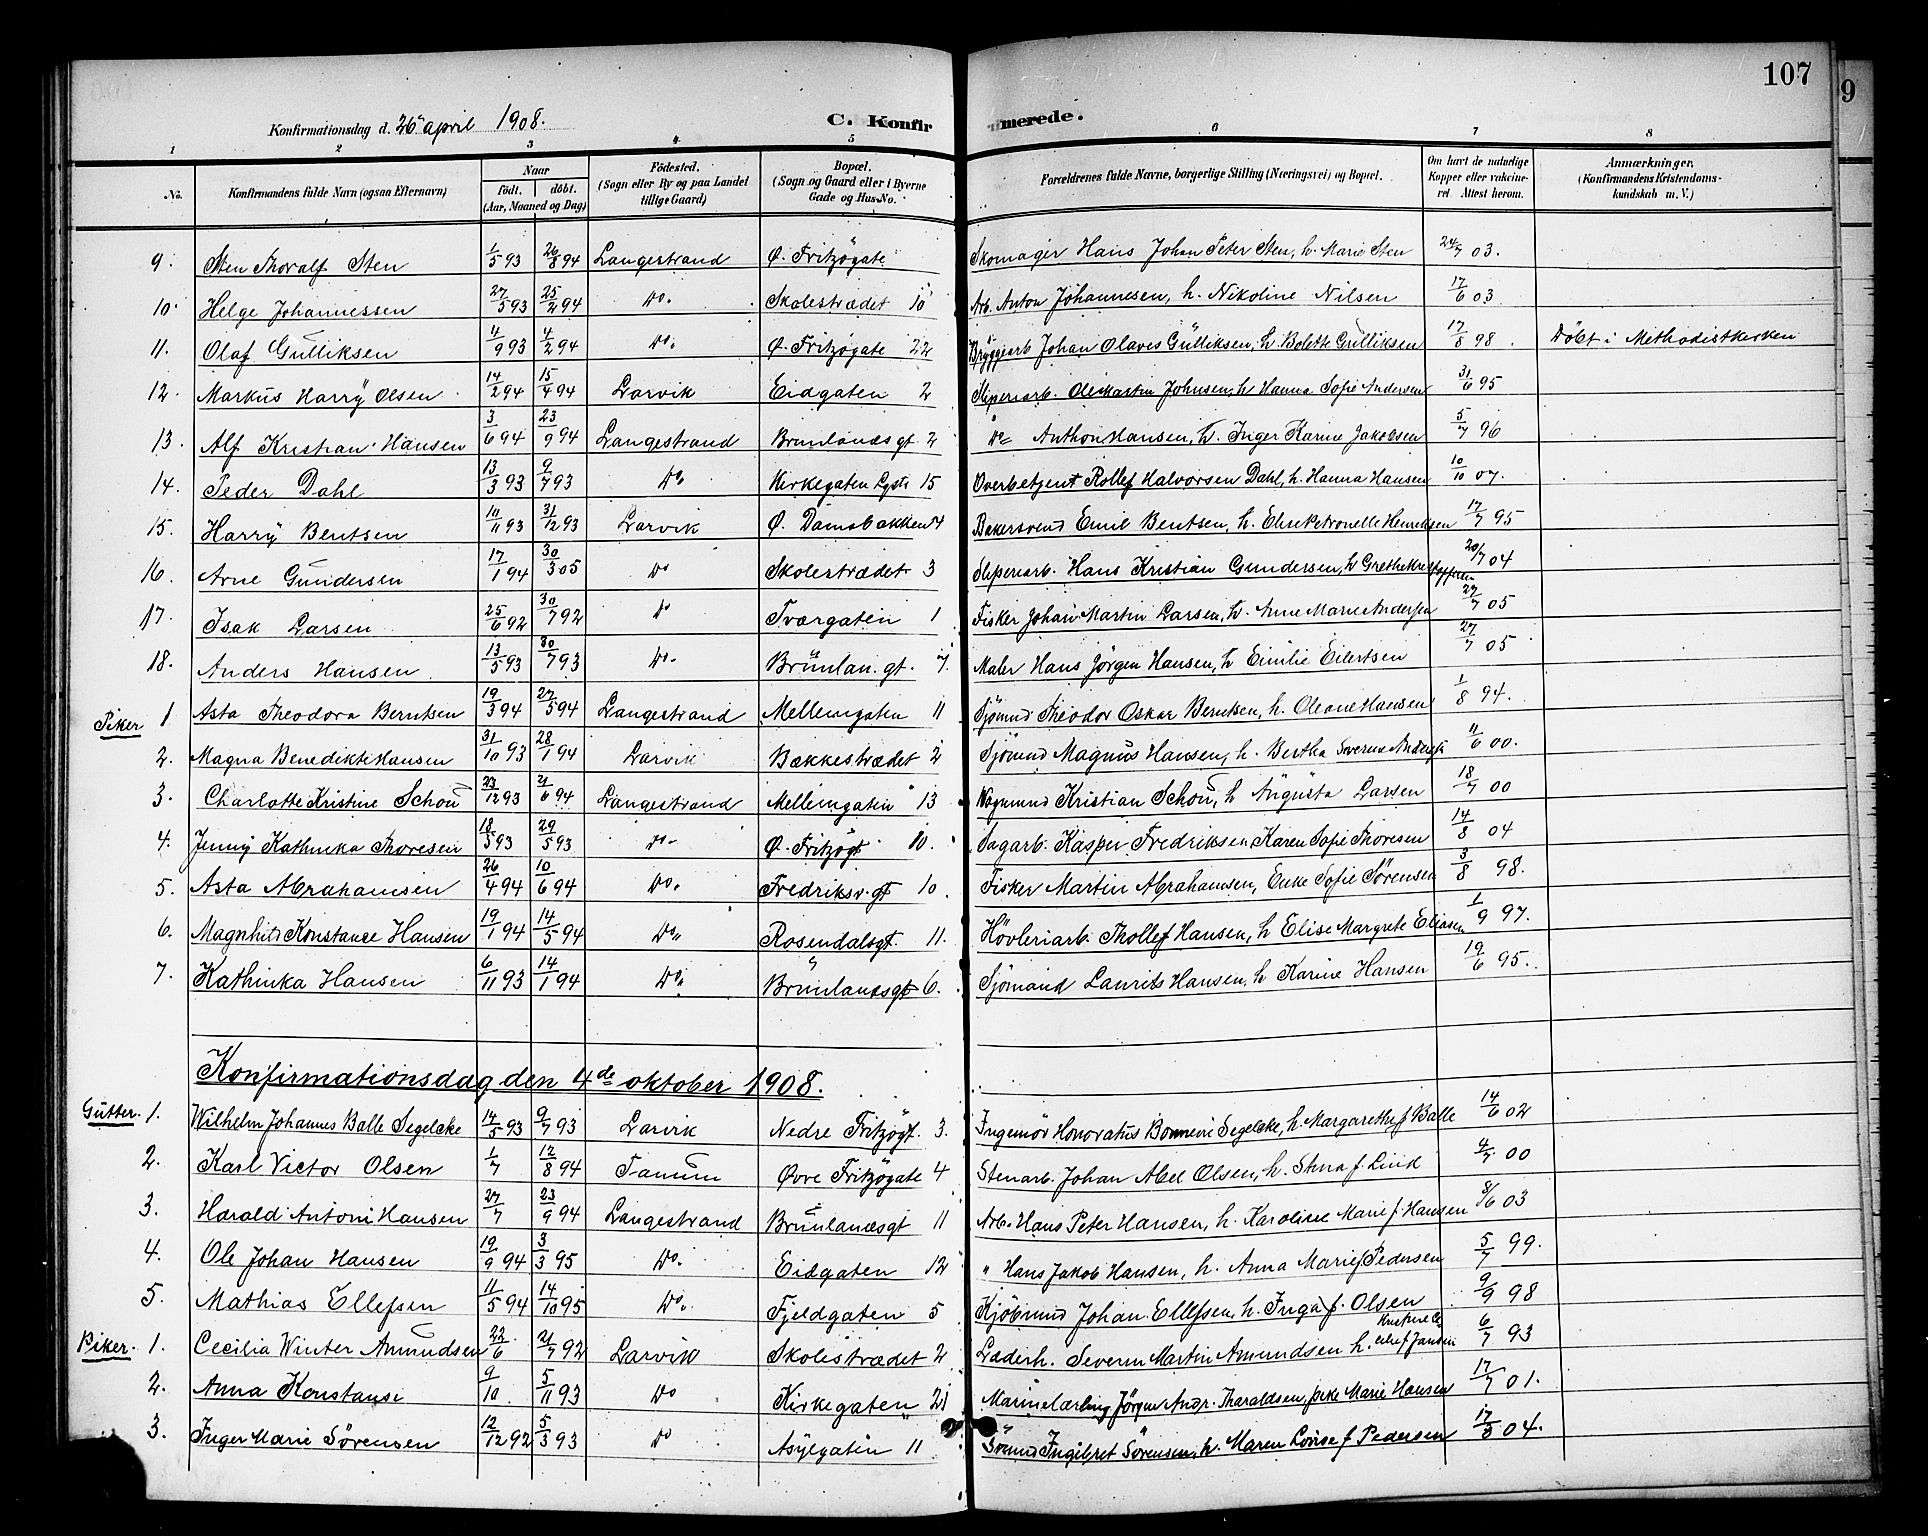 107
9
Konfirmationsdag d. 26 april 1908. C. Konfirmerede.
1 2 3 4 5 6 7 8
No. Konfirmandens fulde Navn (ogsaa Efternavn) Naar født. døbt. (Aar, Maaned og Dag) Födested. (Sogn eller By og paa Landet tillige Gaard) Bopæl. (Sogn og Gaard eller i Byerne Gade og Hus-No. Forældrenes fulde Navne, borgerlige Stilling (Næringsvei) og Bopæl. Om havt de naturlige Kopper eller vakcineret. Attest herom. Anmærkninger. (Konfirmandens Kristendomskundskab m. V.)
9. Sten Thoralf Sten 1/5 93 26/8 94 Langestrand Ø. Fritzögate Skomager Hans Johan Peter Sten, h. Marie Sten 24/7 03.
10. Helge Johannessen 27/5 93 25/2 94 Do. Skolestrædet 10 Arb. Anton Johannesen, h. Nikoline Nilsen 17/6 03
11. Olaf Gulliksen 4/9 93 4/2 94 Do. Ø. Fritzögate 22 Bryggiarb Johan Olaves Gulliksen, h. Bolette Gulliksen 17/8 98. Döbt i Methodistkirken
12. Markus Harry Olsen 14/2 94 15/4 94 Larvik Eidgaten 2 Sliperiarb. Ole Martin Johnsen, h Hanna Sofie Andersen 31/6 95
13. Alf Kristian Hansen 3/6 94 23/9 94 Langestrand Brunlandsgt. 2 Do Anthon Hansen, h. Inger Karine Jakobsen 5/7 96
14. Peder Dahl 13/3 93 9/7 93 Do Kirkegaten Lgstr 15 Overbetjent Rollef Halvorsen Dahl, h. Hanna Hansen 10/10 07.
15. Harry Bentsen 10/11 93 31/12 93 Larvik Ø. Damsbakken 4 Bakersvend Emil Bentsen, h. Elise Petronelle Henriksen 17/7 95
16. Arne Gundersen 17/1 94 30/3 05 Do Skolestrædet 3 Sliperiarb. Hans Kristian Gundersen, h Grethe Kristoffersen 20/7 04
17. Isak Larsen 25/6 92 30/7 92 Do Tværgaten 1 Fisker Johan Martin Larsen, h. Anne Marie Andersen 27/7 05
18. Anders Hansen 13/5 93 30/7 93 Do. Brunlan.gt. 7. Maler Hans Jörgen Hansen, h Emilie Eilertsen 27/7 05
Piker 1 Asta Theodora Berntsen 19/3 94 27/5 94 Langestrand Mellemgaten 11 Sjömnd Theodor Oskar Berntsen, h. Oleane Hansen 1/8 94.
2. Magna Benedikte Hansen 31/10 93 28/1 94 Larvik Bækkestrædet 2 Sjömnd Magnus Hansen, h. Bertha Severine 11/6 00.
3. Charlotte Kristine Schou 23/12 93 21/6 94 Langestrand Mellemgaten 13 Vognmnd Kristian Schou, h Augusta Larsen 18/7 00
4. Jenny Kathinka Thoresen 18/5 93 29/5 93 Do Ø. Fritzögt 10. Sagarb. Kasper Fredriksen, Karen Sofie Thoresen 14/8 04
5. Asta Abrahamsen 26/4 94 10/6 94 Do. Fredriksv.gt 10. Fisker Martin Abrahamsen, Enke Sofie Sörensen 3/8 98.
6. Magnhild Konstance Hansen 19/1 94 14/5 94 Do. Rosendalsgt. 11. Hövleriarb. Thollef Hansen, h Elise Margrete Eliasen 1/9 97.
7. Kathinka Hansen 6/11 93 14/1 94 Do. Brunlandsgt 6. Sjömand Laurits Hansen, h Karine Hansen 19/6 95.
Konfirmationsdag den 4de oktober 1908.
Gutter. 1. Wilhelm Johannes Balle Segelcke 14/5 93 9/7 93 Larvik Nedre Fritzögt. 3. Ingeniör Honoratus Bonnevie Segelcke, h. Margarethe f Balle 14/6 02
2. Karl Victor Olsen 1/7 12/8 94 Tanum Øvre Fritzögate 4 Stenarb. Johan Abel Olsen, h. Stina f. Lind 4/7 00
3. Harald Antoni Hansen 27/7 23/9 94 Langestrand Brunlandsgt 11 Arb. Hans Peter Hansen, h. Karoline Marie f. Hansen 8/6 03
4. Ole Johan Hansen 19/9 94 3/3 95 Do. Eidgaten 12 " Hans Jakob Hansen, h. Anna Marie f Pedersen 5/7 99.
5. Mathias Ellefsen 11/5 94 14/10 95 Do. Fjeldgaten 5 Kjöbmnd Johan Ellefsen, h. Inga f. Olsen 9/9 98
Piker. 1. Cecilia Winter Amundsen 22/6 21/7 92 Larvik Skolestrædet 2 Læderh. Severin Martin Amundsen h. Kristine Cecilie f Jansen 6/7 93
2. Anna Konstansi 9/10. 5/11 93 Do Kirkegaten 21 Marinelærling Jörgen Andr. Tharaldsen, pike Marie Hansen 17/7 01.
3. Inger Marie Sörensen 12/12 92 5/3 93 Do Asylgaten 11 Sömnd Ingebret Sörensen, h. Maren Lovise f Pedersen 17/3 04.